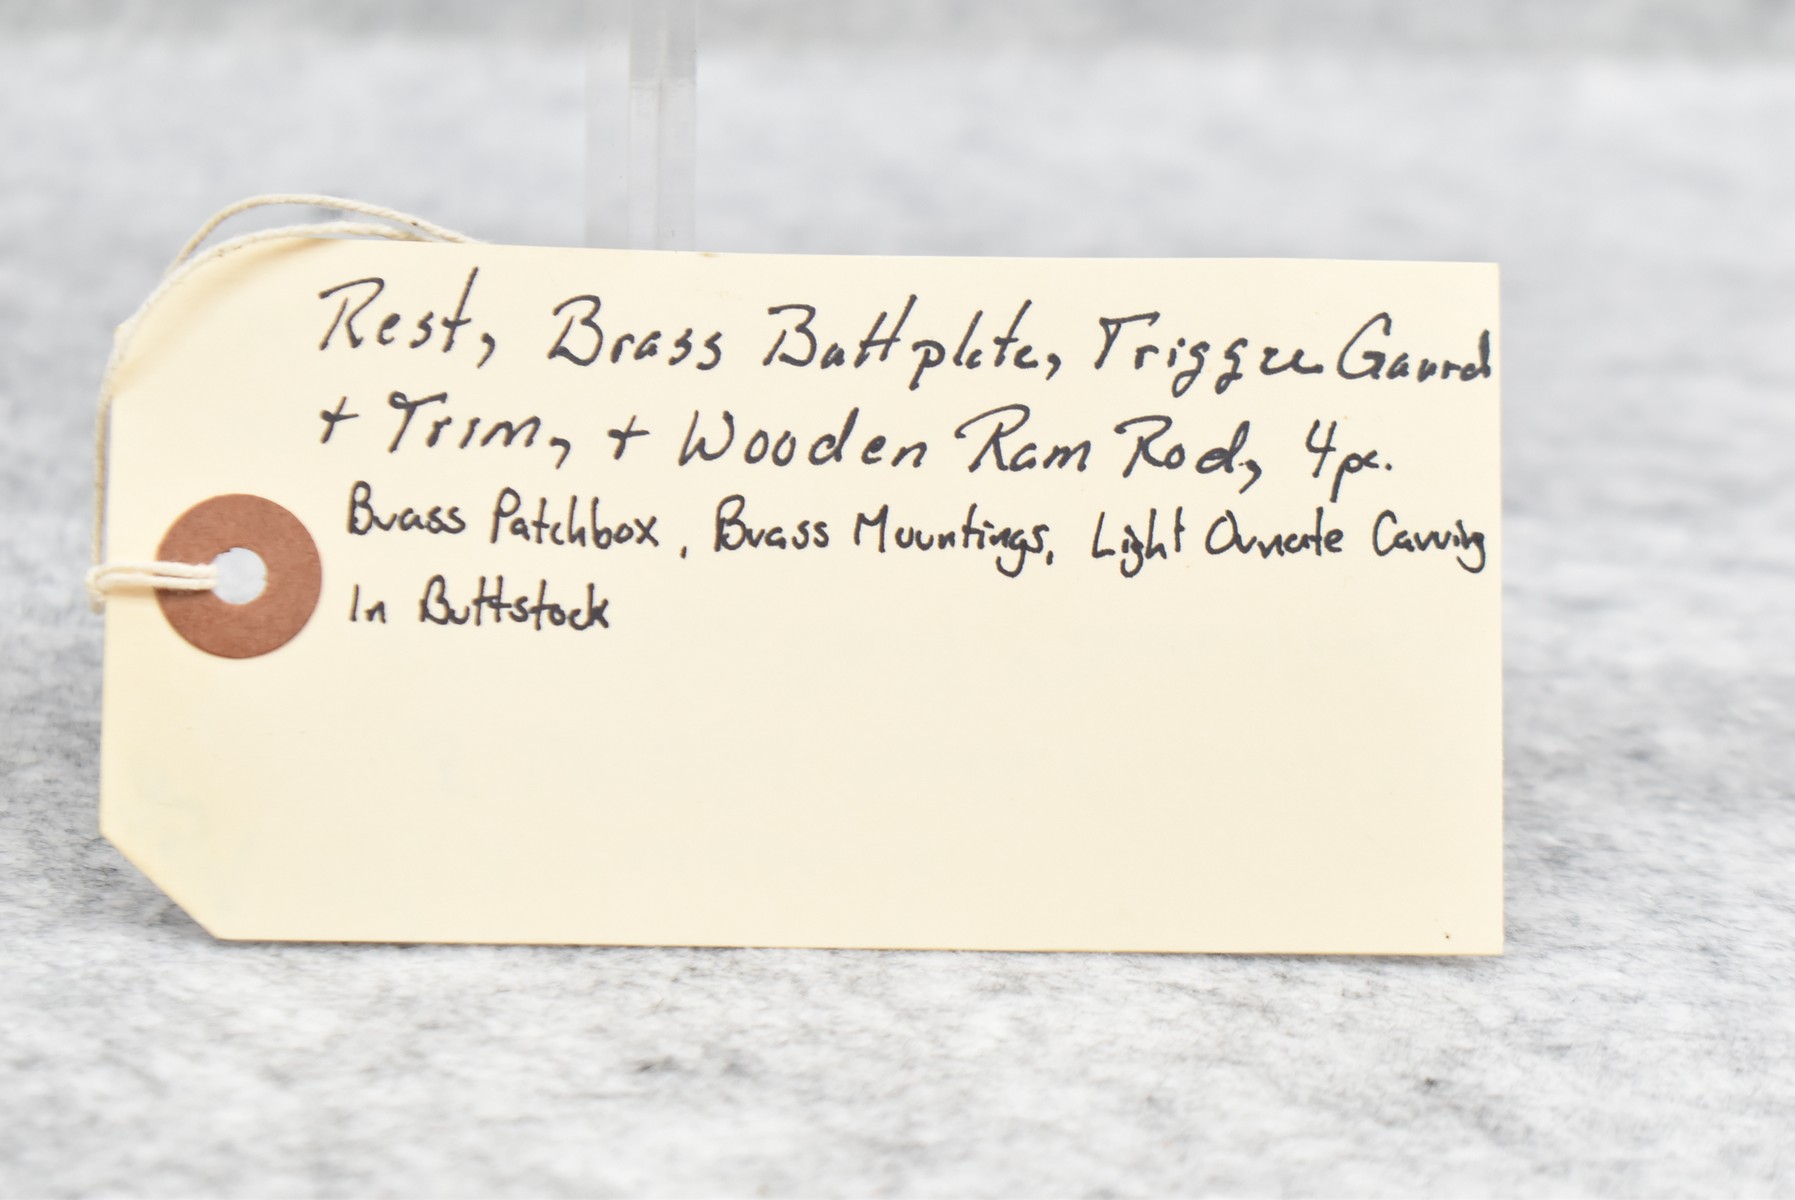 Rest, Brass Buttplate, Trigger Gaurd
+ Trim, + Wooden Ram Rod, 4pc.
Brass Patchbox, Brass Mountings, Light Ornate Carving
In Buttstock